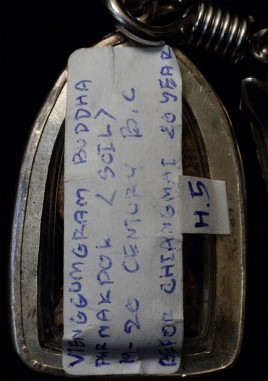 VENGGUMGRAM BUDDHA
PARNAKPOK < SOIL >
M-20 CENTURY B.C
BEFOR CHIANGMAI 20 YEAR
H.5